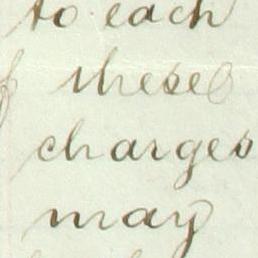 to each
these
charges
may